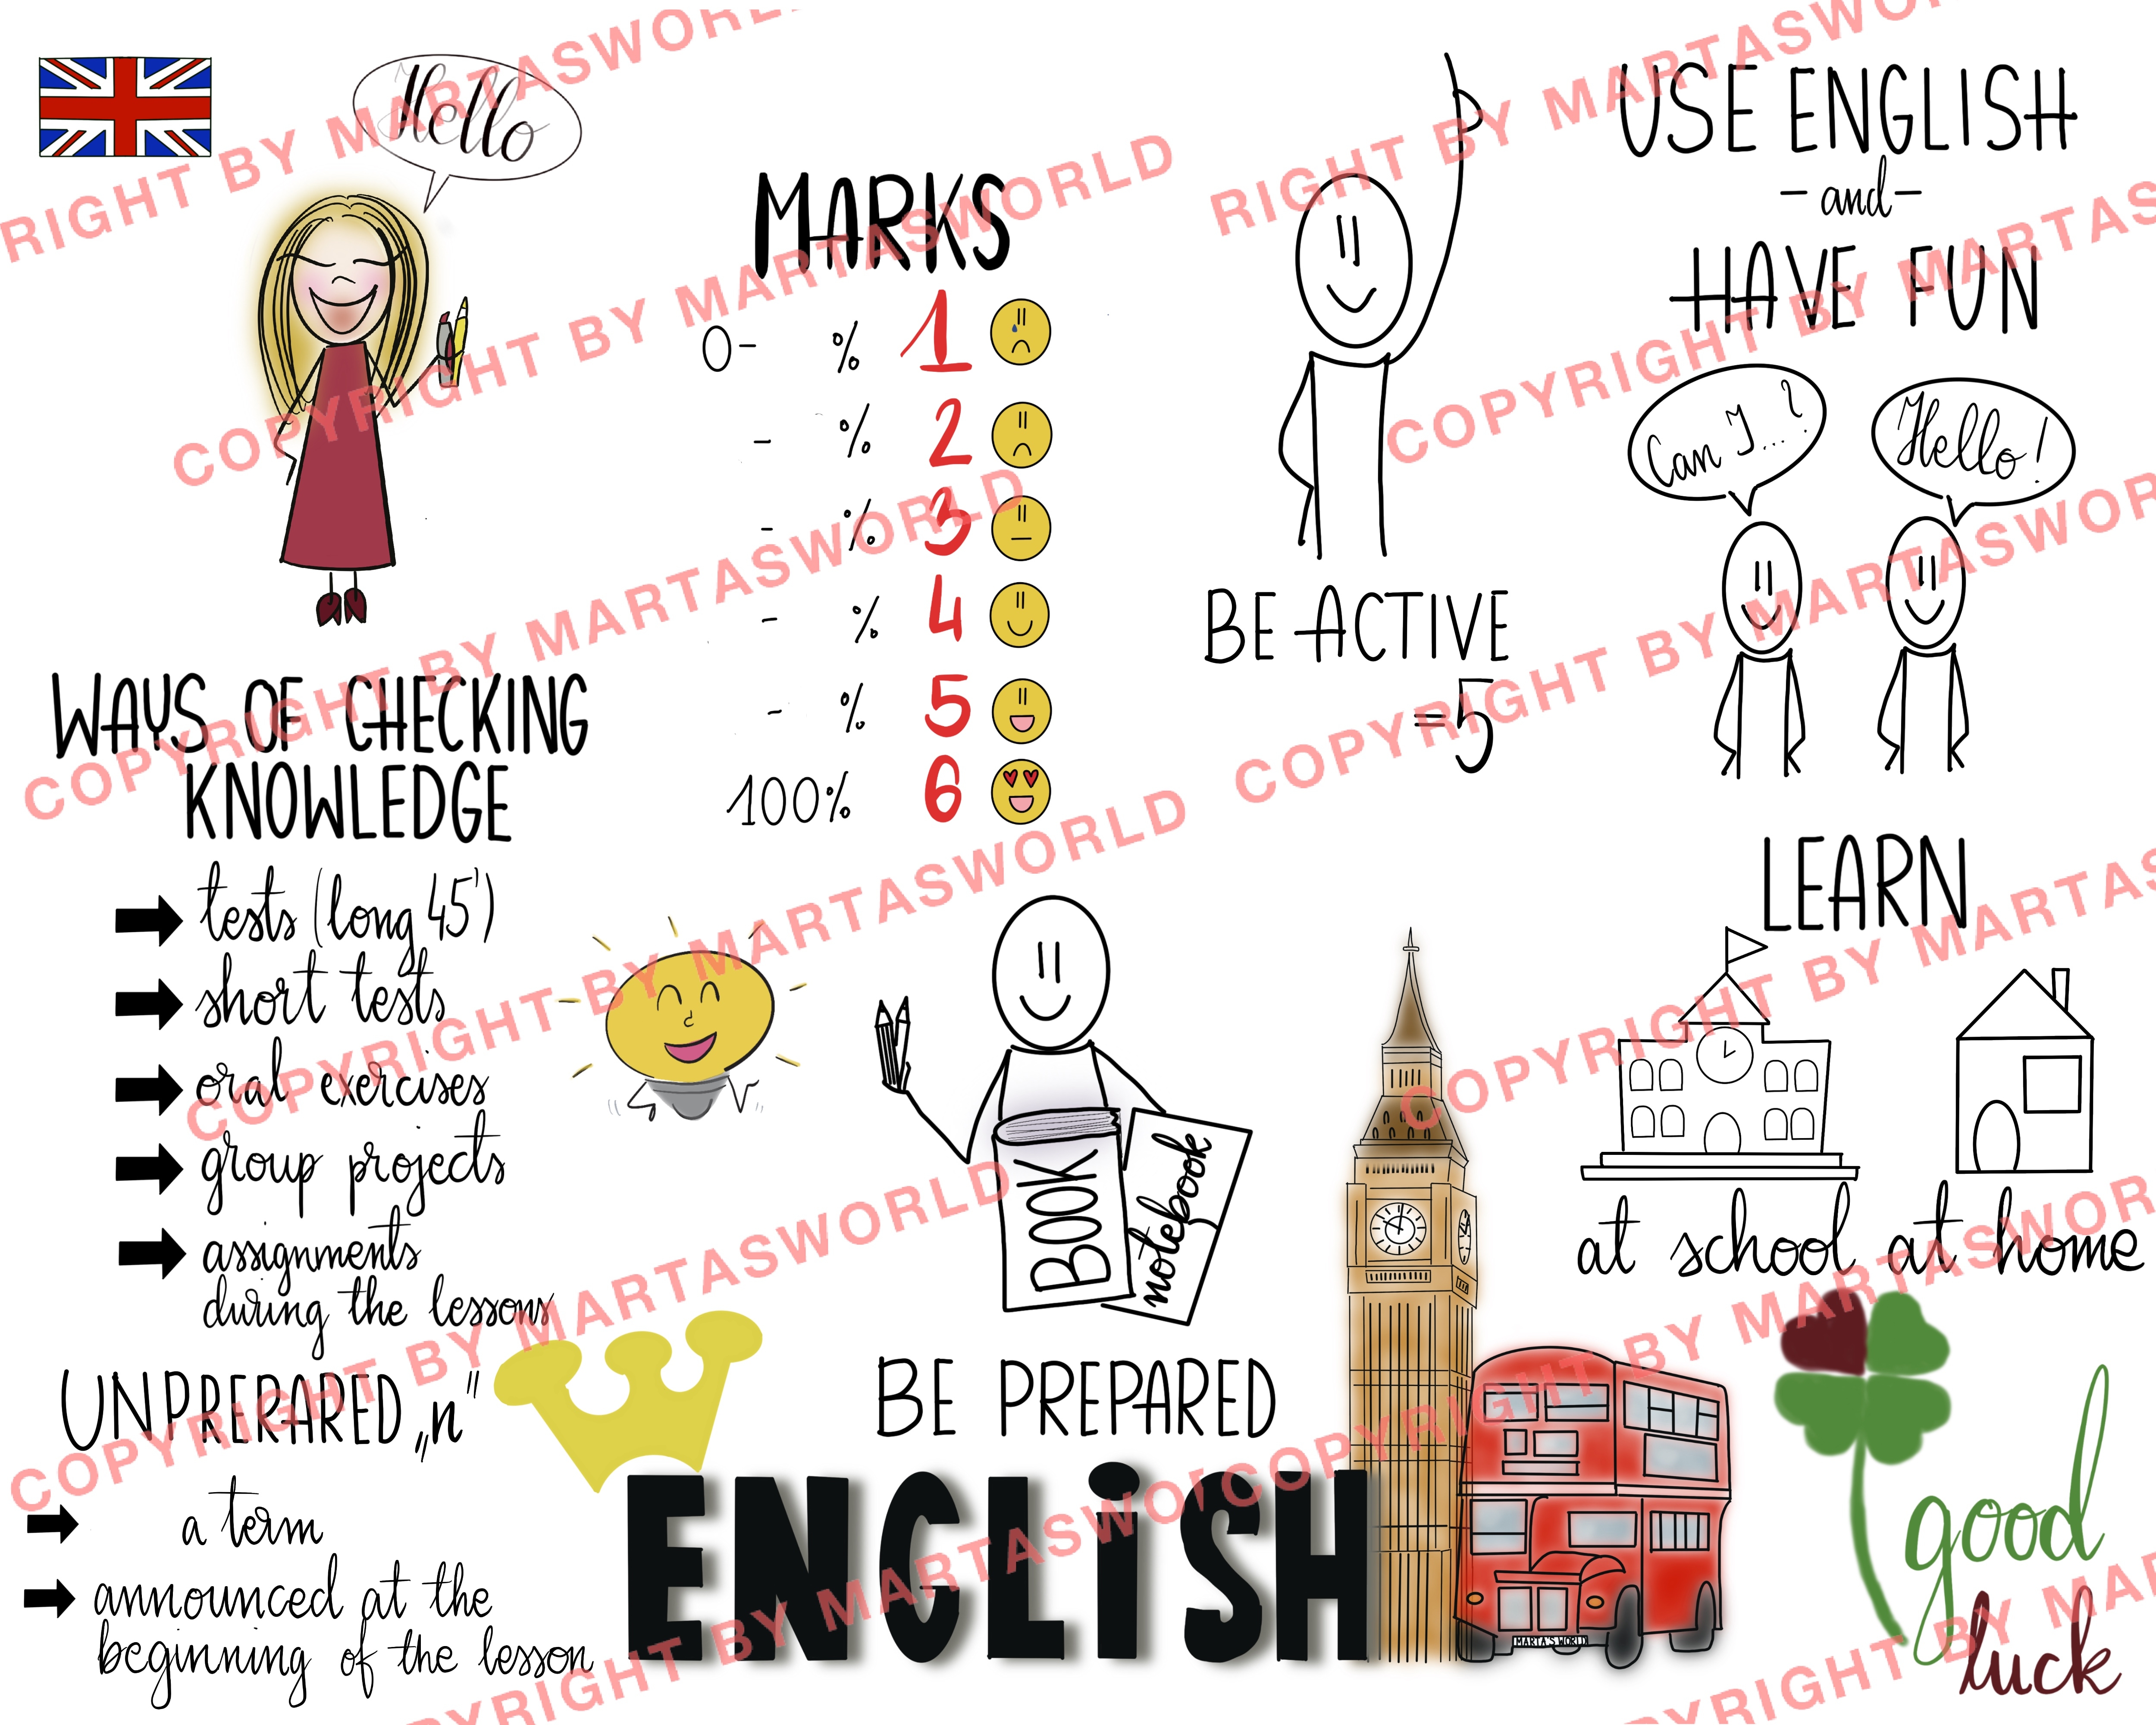 Hello
MARKS
0- % 1
- % 2
- % 3
- % 4
- % 5
100% 6
WAYS OF CHECKING
KNOWLEDGE
tests (long 45')
short tests
oral exercises
group projects
assignments
during the lessons
UNPRERARED „n"
a term
announced at the
beginning of the lesson
BE ACTIVE
=5
USE ENGLISH
-and-
HAVE FUN
Can I...?
Hello!
LEARN
at school at home
BOOK
notebook
BE PREPARED
ENGLiSH
MARTA'S WORLD
good
luck
RIGHT BY MARTASWORLD
COPYRIGHT BY MARTASWORLD
COPYRIGHT BY MARTASWORLD
COPYRIGHT BY MARTASWORLD
COPYRIGHT BY MARTASWORLD
RIGHT BY MARTASWOR
RIGHT BY MARTASWORL
COPYRIGHT BY MARTAS
COPYRIGHT BY MARTASWOR
COPYRIGHT BY MARTAS
COPYRIGHT BY MARTASWOR
PYRIGHT BY MAR